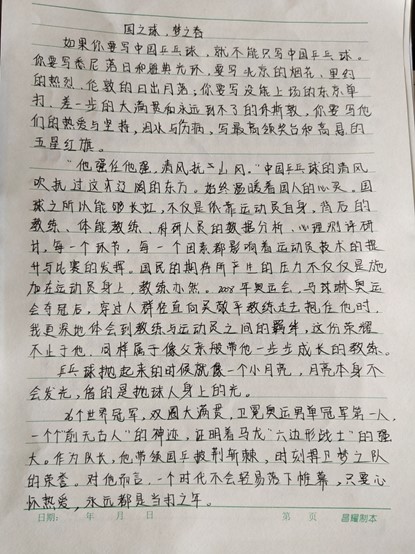 国之球，梦之春
如果你要写中国乒乓球，就不能只写中国乒乓球。
你要写悉尼落日和雅典光环，要写北京的烟花，里约
的热烈，伦敦的日出月落；你要写没能上场的东京单
打，差一步的大满贯和永远到不了的休斯敦，你要写他
们的热爱与坚持，泪水与伤病，写最高领奖台和高悬的
五星红旗。
“他强任他强，清风抚山冈。”中国乒乓球的清风
吹抚过这片辽阔的东方，始终温暖着国人的心灵。国
球之所以能够长虹，不仅是依靠运动员自身，背后的
教练、体能教练、科研人员的数据分析、心理师许研
计，每一个环节，每一个因素都影响着运动员技术的提
升与比赛的发挥。国民的期待所产生的压力不仅仅是施
加在运动员身上，教练亦然。2008年奥运会，马琳奥运
会夺冠后，穿过人群径直向吴敬平教练走去抱住他时，
我更深地体会到教练与运动员之间的羁绊，这份荣耀
不止于他，同样属于像父亲般带他一步步成长的教练。
乒乓球抛起来的时候就像一个小月亮，月亮本身不
会发光，借的是抛球人身上的光。
26个世界冠军，双圈大满贯，卫冕奥运男单冠军第一人，
一个个“前无古人”的神迹，证明着马龙“六边形战士”的强
大。作为队长，他带领国乒披荆斩棘，时刻捍卫梦之队
的荣誉。对他而言，一个时代不会轻易落下帷幕，只要心
怀热爱，永远都是当打之年。
日期： 年 月 日 第 页 昌耀制本